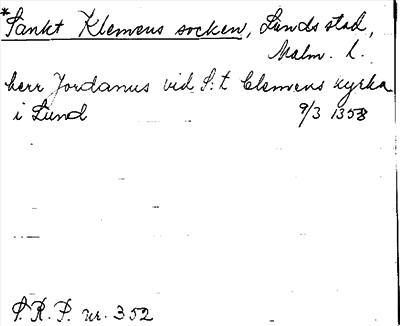 *Sankt Klemens socken, Lunds stad,
Malm. l.
herr Jordanus vid S:t Clemens kyrka
i Lund 9/3 1358
S. R. P. nr. 352